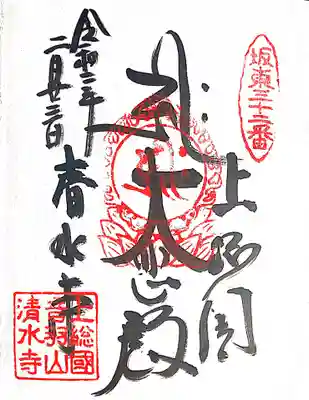 坂東三十二番
上総国
大悲殿
清水寺
令和二年
二月廿三日
上総國
音羽山
清水寺